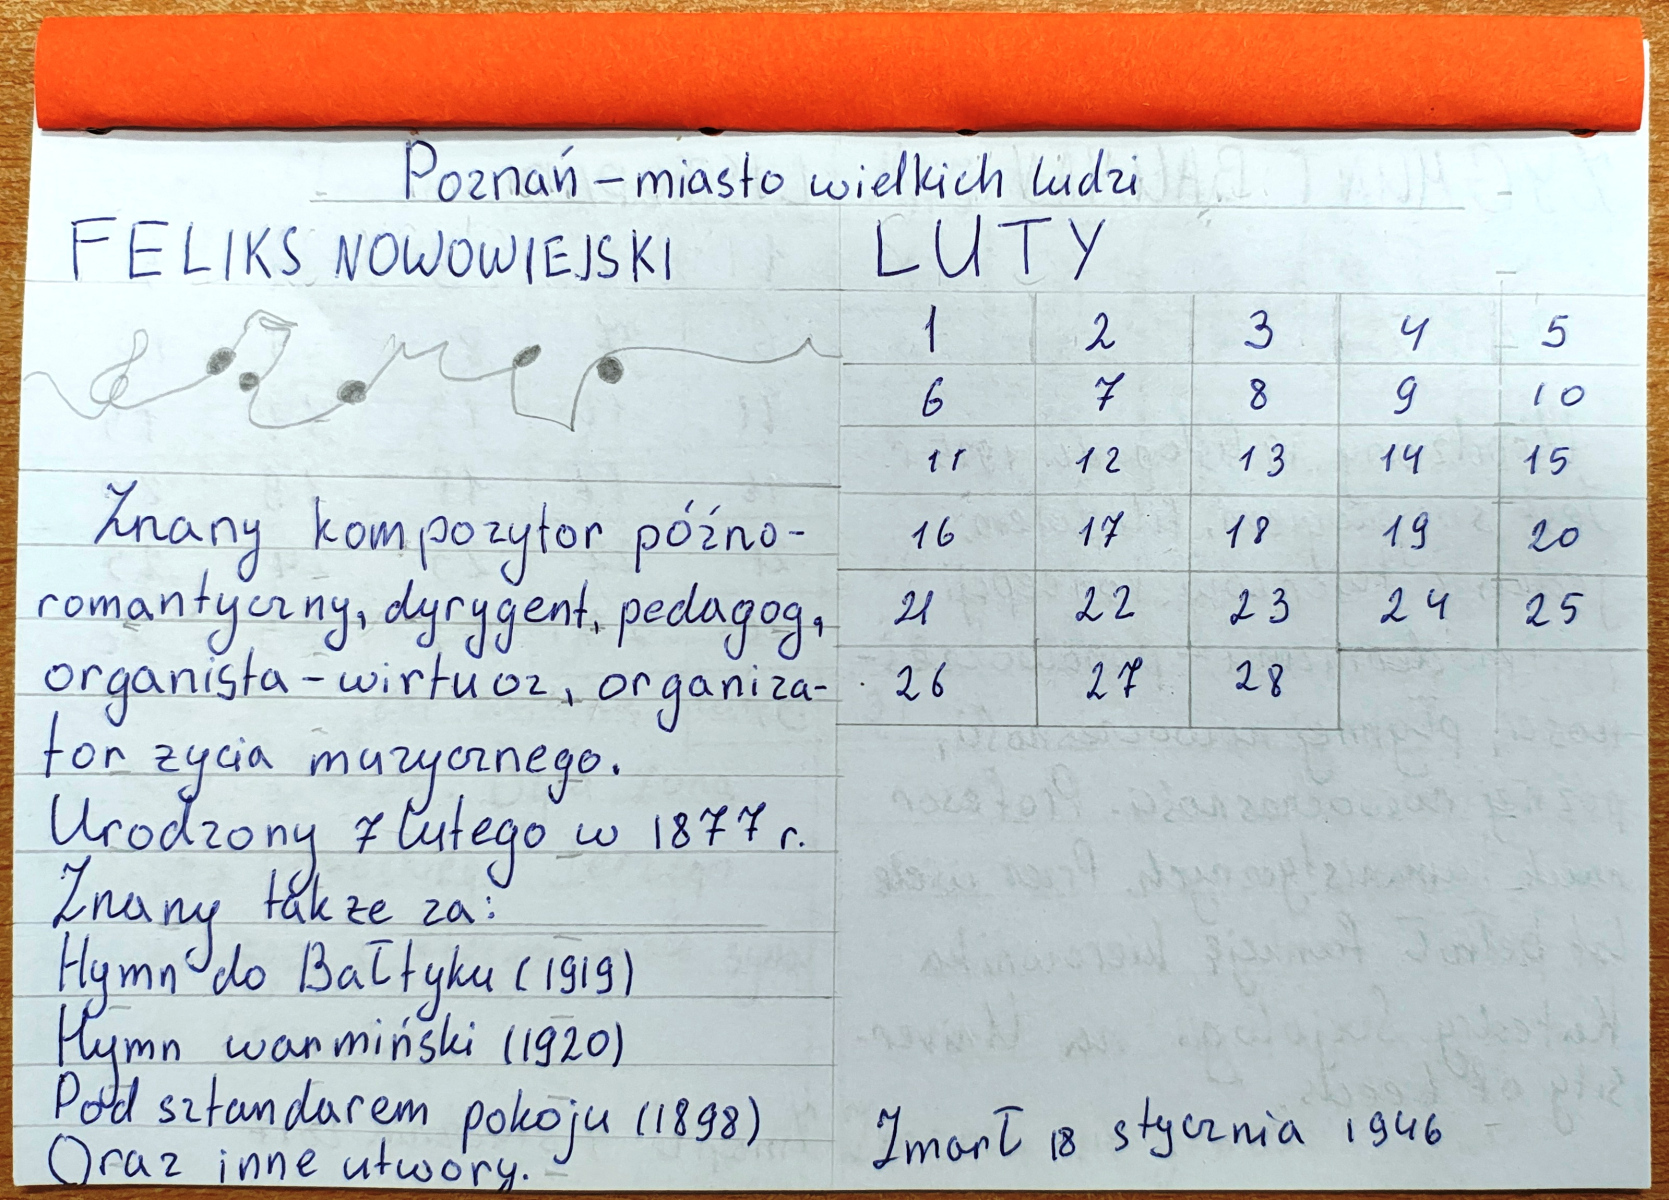 Poznań – miasto wielkich ludzi
FELIKS NOWOWIEJSKI
Znany kompozytor późno-
romantyczny, dyrygent, pedagog,
organista – wirtuoz, organiza-
tor zycia muzycznego.
Urodzony 7 lutego w 1877 r.
Znany także za:
Hymn do Bałtyku (1919)
Hymn warmiński (1920)
Pod sztandarem pokoju (1898)
Oraz inne utwory.
LUTY
1 2 3 4 5
6 7 8 9 10
11 12 13 14 15
16 17 18 19 20
21 22 23 24 25
26 27 28
Zmarł 18 stycznia 1946